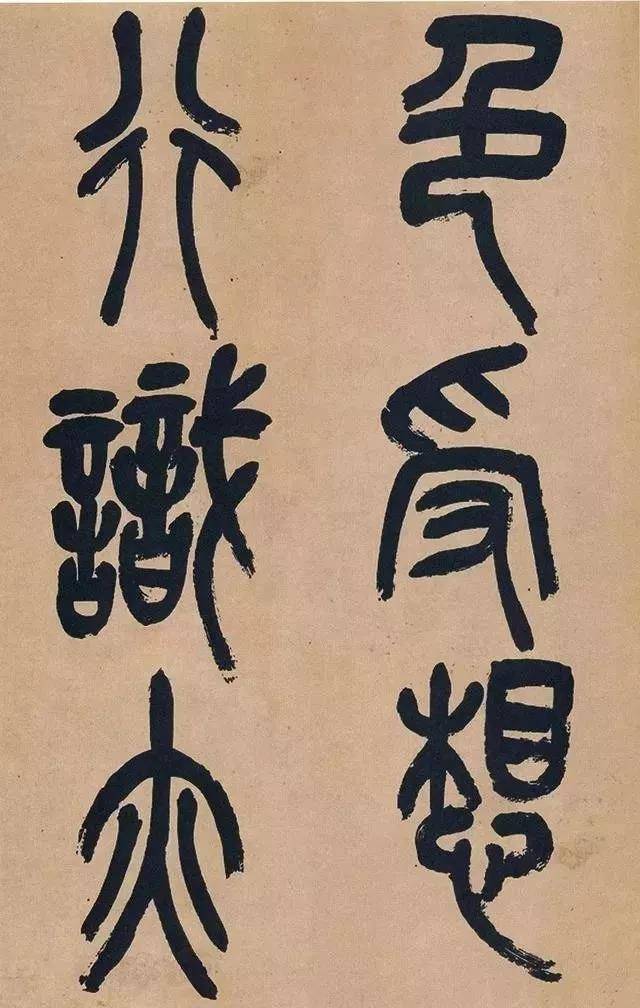 色受想
行識亦